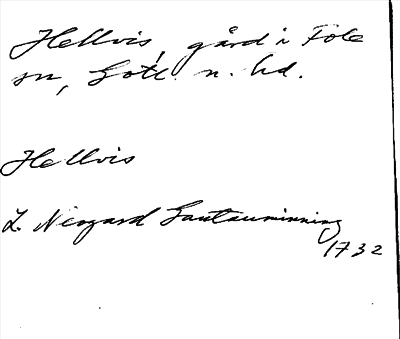 Hellvis, gård i Fole
sn, Gotl. n. hd.
Hellvis
L. Neogard Gautauminning
1732